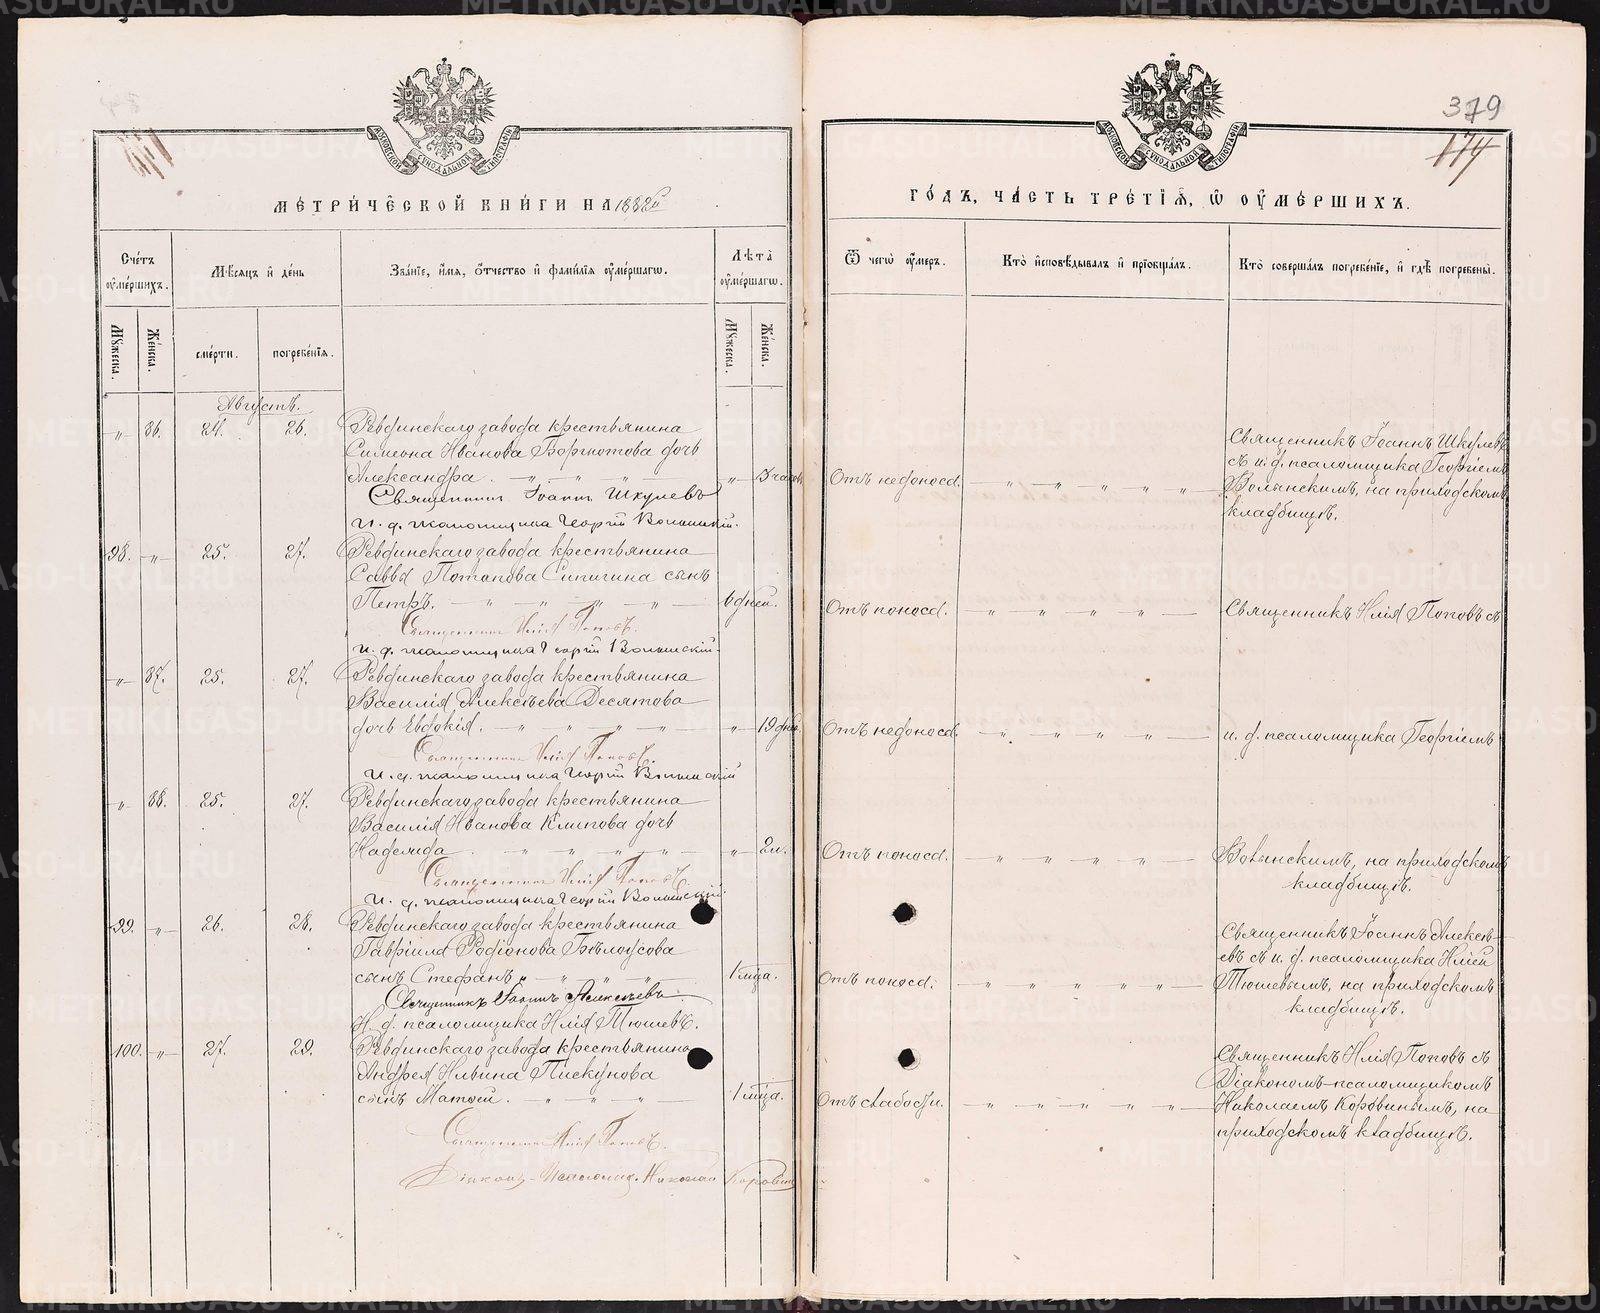 379
174
МОСКОВСКОЙ СѴНОДАЛЬНОЙ ТИПОГРАФІИ
МОСКОВСКОЙ СѴНОДАЛЬНОЙ ТИПОГРАФІИ
МЕТРИЧЕСКОЙ КНИГИ НА 1882й
ГОДЪ, ЧАСТЬ ТРЕТІЯ, Ѿ ОУМЕРШИХЪ.
Счетъ оумершихъ.
Мѣсяцъ и день
Званіе, имя, отчество и фамилія оумершагѡ.
Лѣта оумершагѡ.
Ѿ чегѡ оумеръ.
Кто исповѣдывалъ и пріобщалъ.
Кто совершалъ погребеніе, и гдѣ погребены.
Мужеска.
Женска.
смерти.
погребенія.
Мужеска.
Женска.
Августъ.
„ 86. 24. 26. Ревдинскаго завода крестьянина
Симеона Иванова дочь
Александра. „ „ „ „ Отъ недоноса. „ „ „ „ „
Священникъ Іоаннъ Шкулевъ
съ и. д. псаломщика Георгіемъ
Волынскимъ, на приходскомъ
кладбищѣ.
Священникъ Іоаннъ Шкулевъ
И. д. псаломщика Георгій Волынскій.
98. „ 25. 27. Ревдинскаго завода крестьянина
Саввы Потапова Сипигина сынъ
Петръ. „ „ „ „ 6 дней. Отъ поноса. „ „ „ „ Священникъ Илія Поповъ съ
Священникъ Илія Поповъ.
И. д. псаломщика Георгій Волынскій.
„ 87. 25. 27. Ревдинскаго завода крестьянина
Василія Алексѣева Десятова
дочь Евдокія. „ „ „ „ „ 19 дней. Отъ недоноса. „ „ „ „ и. д. псаломщика Георгіемъ
Священникъ Илія Поповъ.
И. д. псаломщика Георгій Волынскій
„ 88. 25. 27. Ревдинскаго завода крестьянина
Василія Иванова Климова дочь
Надежда. „ „ „ „ „ 2 н. Отъ поноса. „ „ „ „ Волынскимъ, на приходскомъ
кладбищѣ.
Священникъ Илія Поповъ.
И. д. псаломщика Георгій Волынскій
99. „ 26. 28. Ревдинскаго завода крестьянина
Гавріила Родіонова Бѣлоусова
сынъ Стефанъ. „ „ „ „ 1 мѣсяца. Отъ поноса. „ „ „ „ „
Священникъ Іоаннъ Алексѣ-
евъ съ и. д. псаломщика Иліей
Тюшевымъ, на приходскомъ
кладбищѣ.
Священникъ Іоаннъ Алексѣевъ.
И. д. псаломщика Илія Тюшевъ.
100. „ 27. 29. Ревдинскаго завода крестьянина
Андрея Ильина Пискунова
сынъ Матѳей. „ „ „ 1 мѣсяца. Отъ слабости. „ „ „ „ „
Священникъ Илія Поповъ съ
Діакономъ-псаломщикомъ
Николаемъ Коровинымъ, на
приходскомъ кладбищѣ.
Священникъ Илія Поповъ.
Діаконъ-Псаломщ. Николай Коровинъ
METRIKI.GASO-URAL.RU